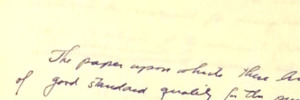 The paper upon which these
of good standard quality for the